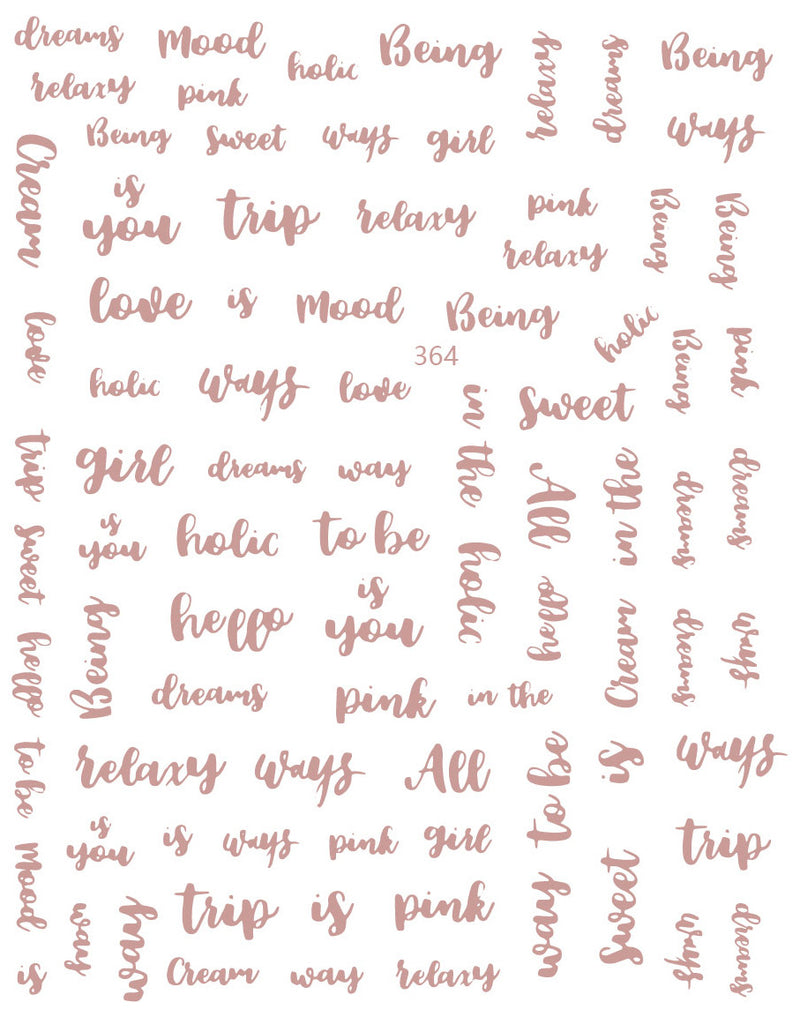 dreams Mood holic Being
relaxy pink
relaxy
dreams
Being
ways
Being Sweet ways girl
Cream
is
you
trip relaxy
pink
relaxy
Being
Being
love is Mood Being
love
holic
Being
pink
364
holic ways love
in the
Sweet
trip
girl dreams way
All
in the
dreams
dreams
Sweet
is
you
holic to be
holic
hello
Cream
dreams
ways
hello
Being
hello
is
you
dreams pink in the
to be
relaxy ways All
way to be
is
ways
Mood
is
you
is ways pink girl
Sweet
trip
is
way
way
trip is pink
ways
dreams
Cream way relaxy